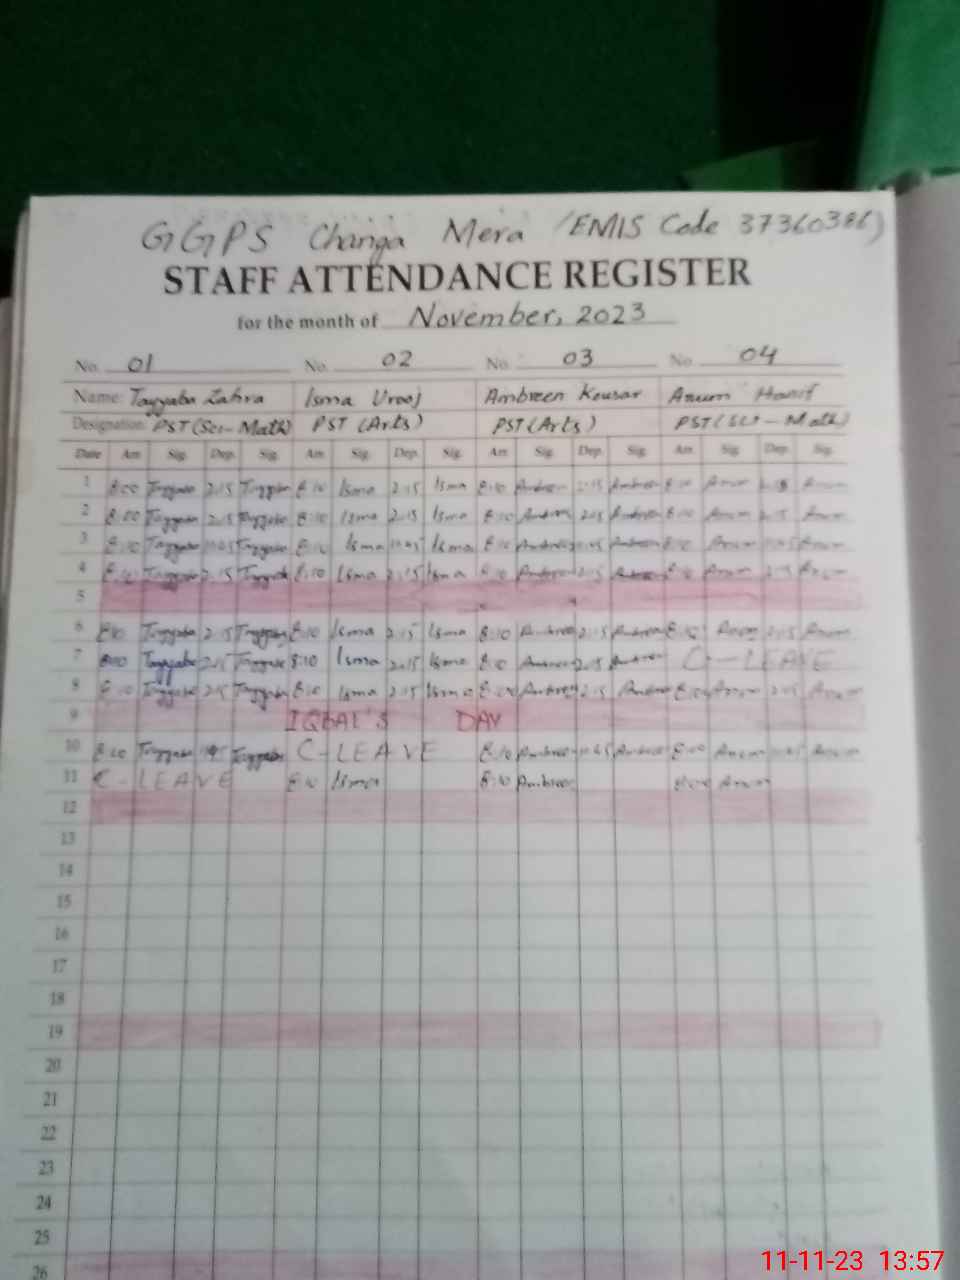 GGPS Changa Mera (EMIS Code 37360386)
STAFF ATTENDANCE REGISTER
for the month of November, 2023
No. 01 No. 02 No. 03 No. 04
Name: Tayyaba Zahra Isma Urooj Ambreen Kousar Anum Hanif
Designation: PST (Sci-Math) PST (Arts) PST (Arts) PST (Sci-Math)
Date Arr. Sig. Dep. Sig. Arr. Sig. Dep. Sig. Arr. Sig. Dep. Sig. Arr. Sig. Dep. Sig.
1 8:00 Tayyaba 2:15 Tayyaba 8:10 Isma 2:15 Isma 8:10 Ambreen 2:15 Ambreen 8:10 Anum 2:15 Anum
2 8:00 Tayyaba 2:15 Tayyaba 8:10 Isma 2:15 Isma 8:10 Ambreen 2:15 Ambreen 8:10 Anum 2:15 Anum
3 8:10 Tayyaba Tayyaba 8:10 Isma Isma 8:10 Ambreen Ambreen 8:10 Anum Anum
4 8:10 Tayyaba 2:15 Tayyaba 8:10 Isma 2:15 Isma 8:10 Ambreen 2:15 Ambreen 8:10 Anum 2:15 Anum
5
6 8:10 Tayyaba 2:15 Tayyaba 8:10 Isma 2:15 Isma 8:10 Ambreen 2:15 Ambreen 8:10 Anum 2:15 Anum
7 8:00 Tayyaba 2:15 Tayyaba 8:10 Isma 2:15 Isma 8:10 Ambreen 2:15 Ambreen C-LEAVE
8 8:10 Tayyaba 2:15 Tayyaba 8:10 Isma 2:15 Isma Ambreen 2:15 Ambreen Anum 2:15 Anum
9 IQBAL'S DAY
10 Tayyaba Tayyaba C-LEAVE 8:10 Ambreen Ambreen Anum Anum
11 C-LEAVE 8:10 Isma 8:10 Ambreen Anum
12
13
14
15
16
17
18
19
20
21
22
23
24
25
26
11-11-23 13:57